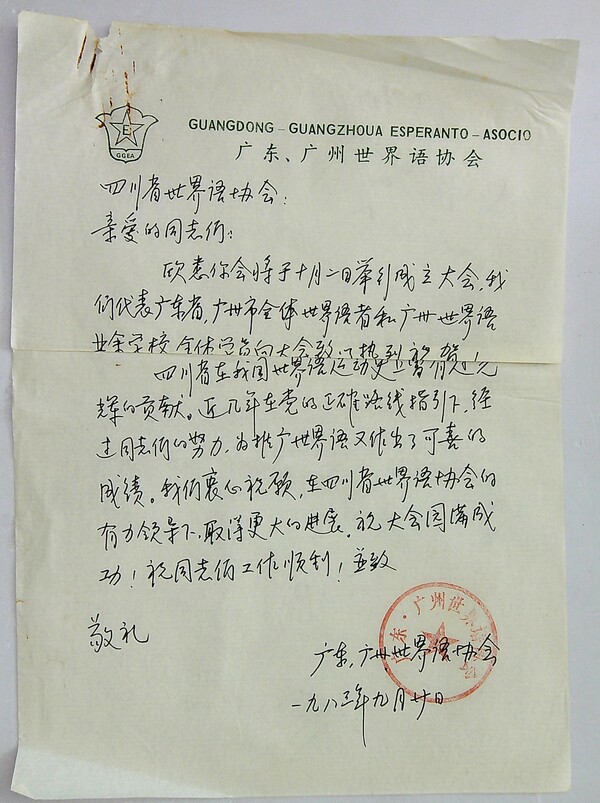 E
GGEA
GUANGDONG-GUANGZHOUA ESPERANTO-ASOCIO
广东、广州世界语协会
四川省世界语协会:
亲爱的同志们:
欣悉你会将于十月二日举行成立大会,我
们代表广东省,广州市全体世界语者和广州世界语
业余学校全体学员向大会致以热烈祝贺
四川省在我国世界语运动史上曾有过光
辉的贡献。近几年在党的正确路线指引下,经
过同志们的努力,为推广世界语又作出了可喜的
成绩。我们衷心祝愿,在四川省世界语协会的
有力领导下,取得更大的进展。祝大会圆满成
功!祝同志们工作顺利!并致
敬礼
广东、广州世界语协会
广东,广州世界语协会
一九八三年九月廿日